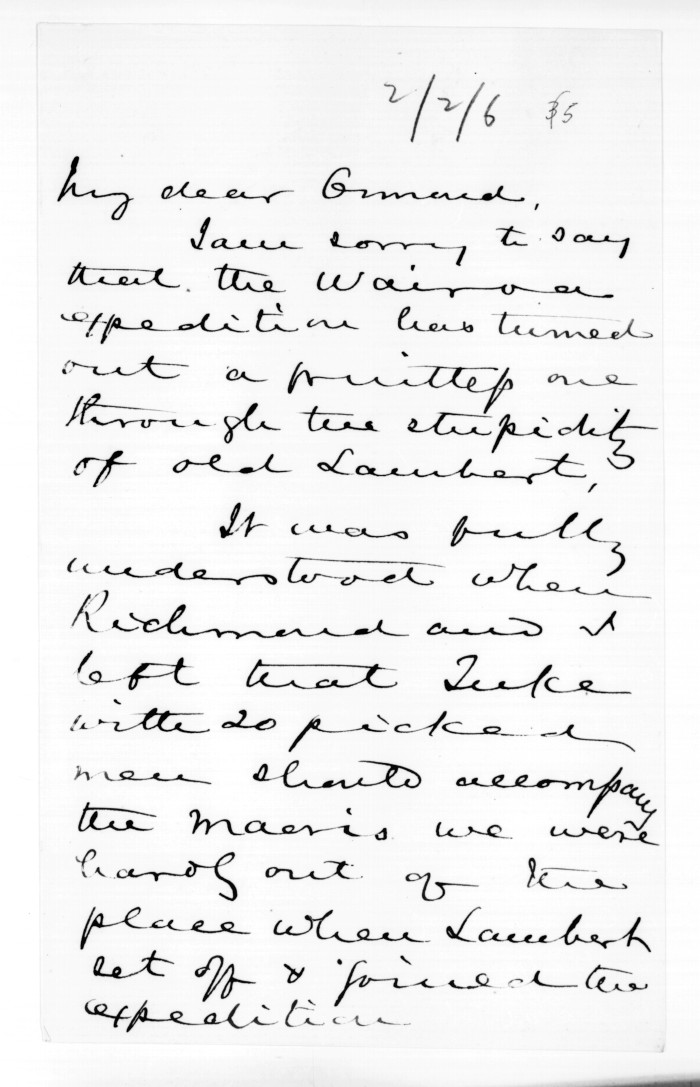 2/2/6
My dear Ormond,
I am sorry to say
that the Wairoa
expedition has turned
out a fruitless one
through the stupidity
of old Lambert,
It was fully
understood when
Richmond and I
left that Tuke
with 20 picked
men should accompany
the Maoris we were
hardly out of the
place when Lambert
set off & joined the
expedition